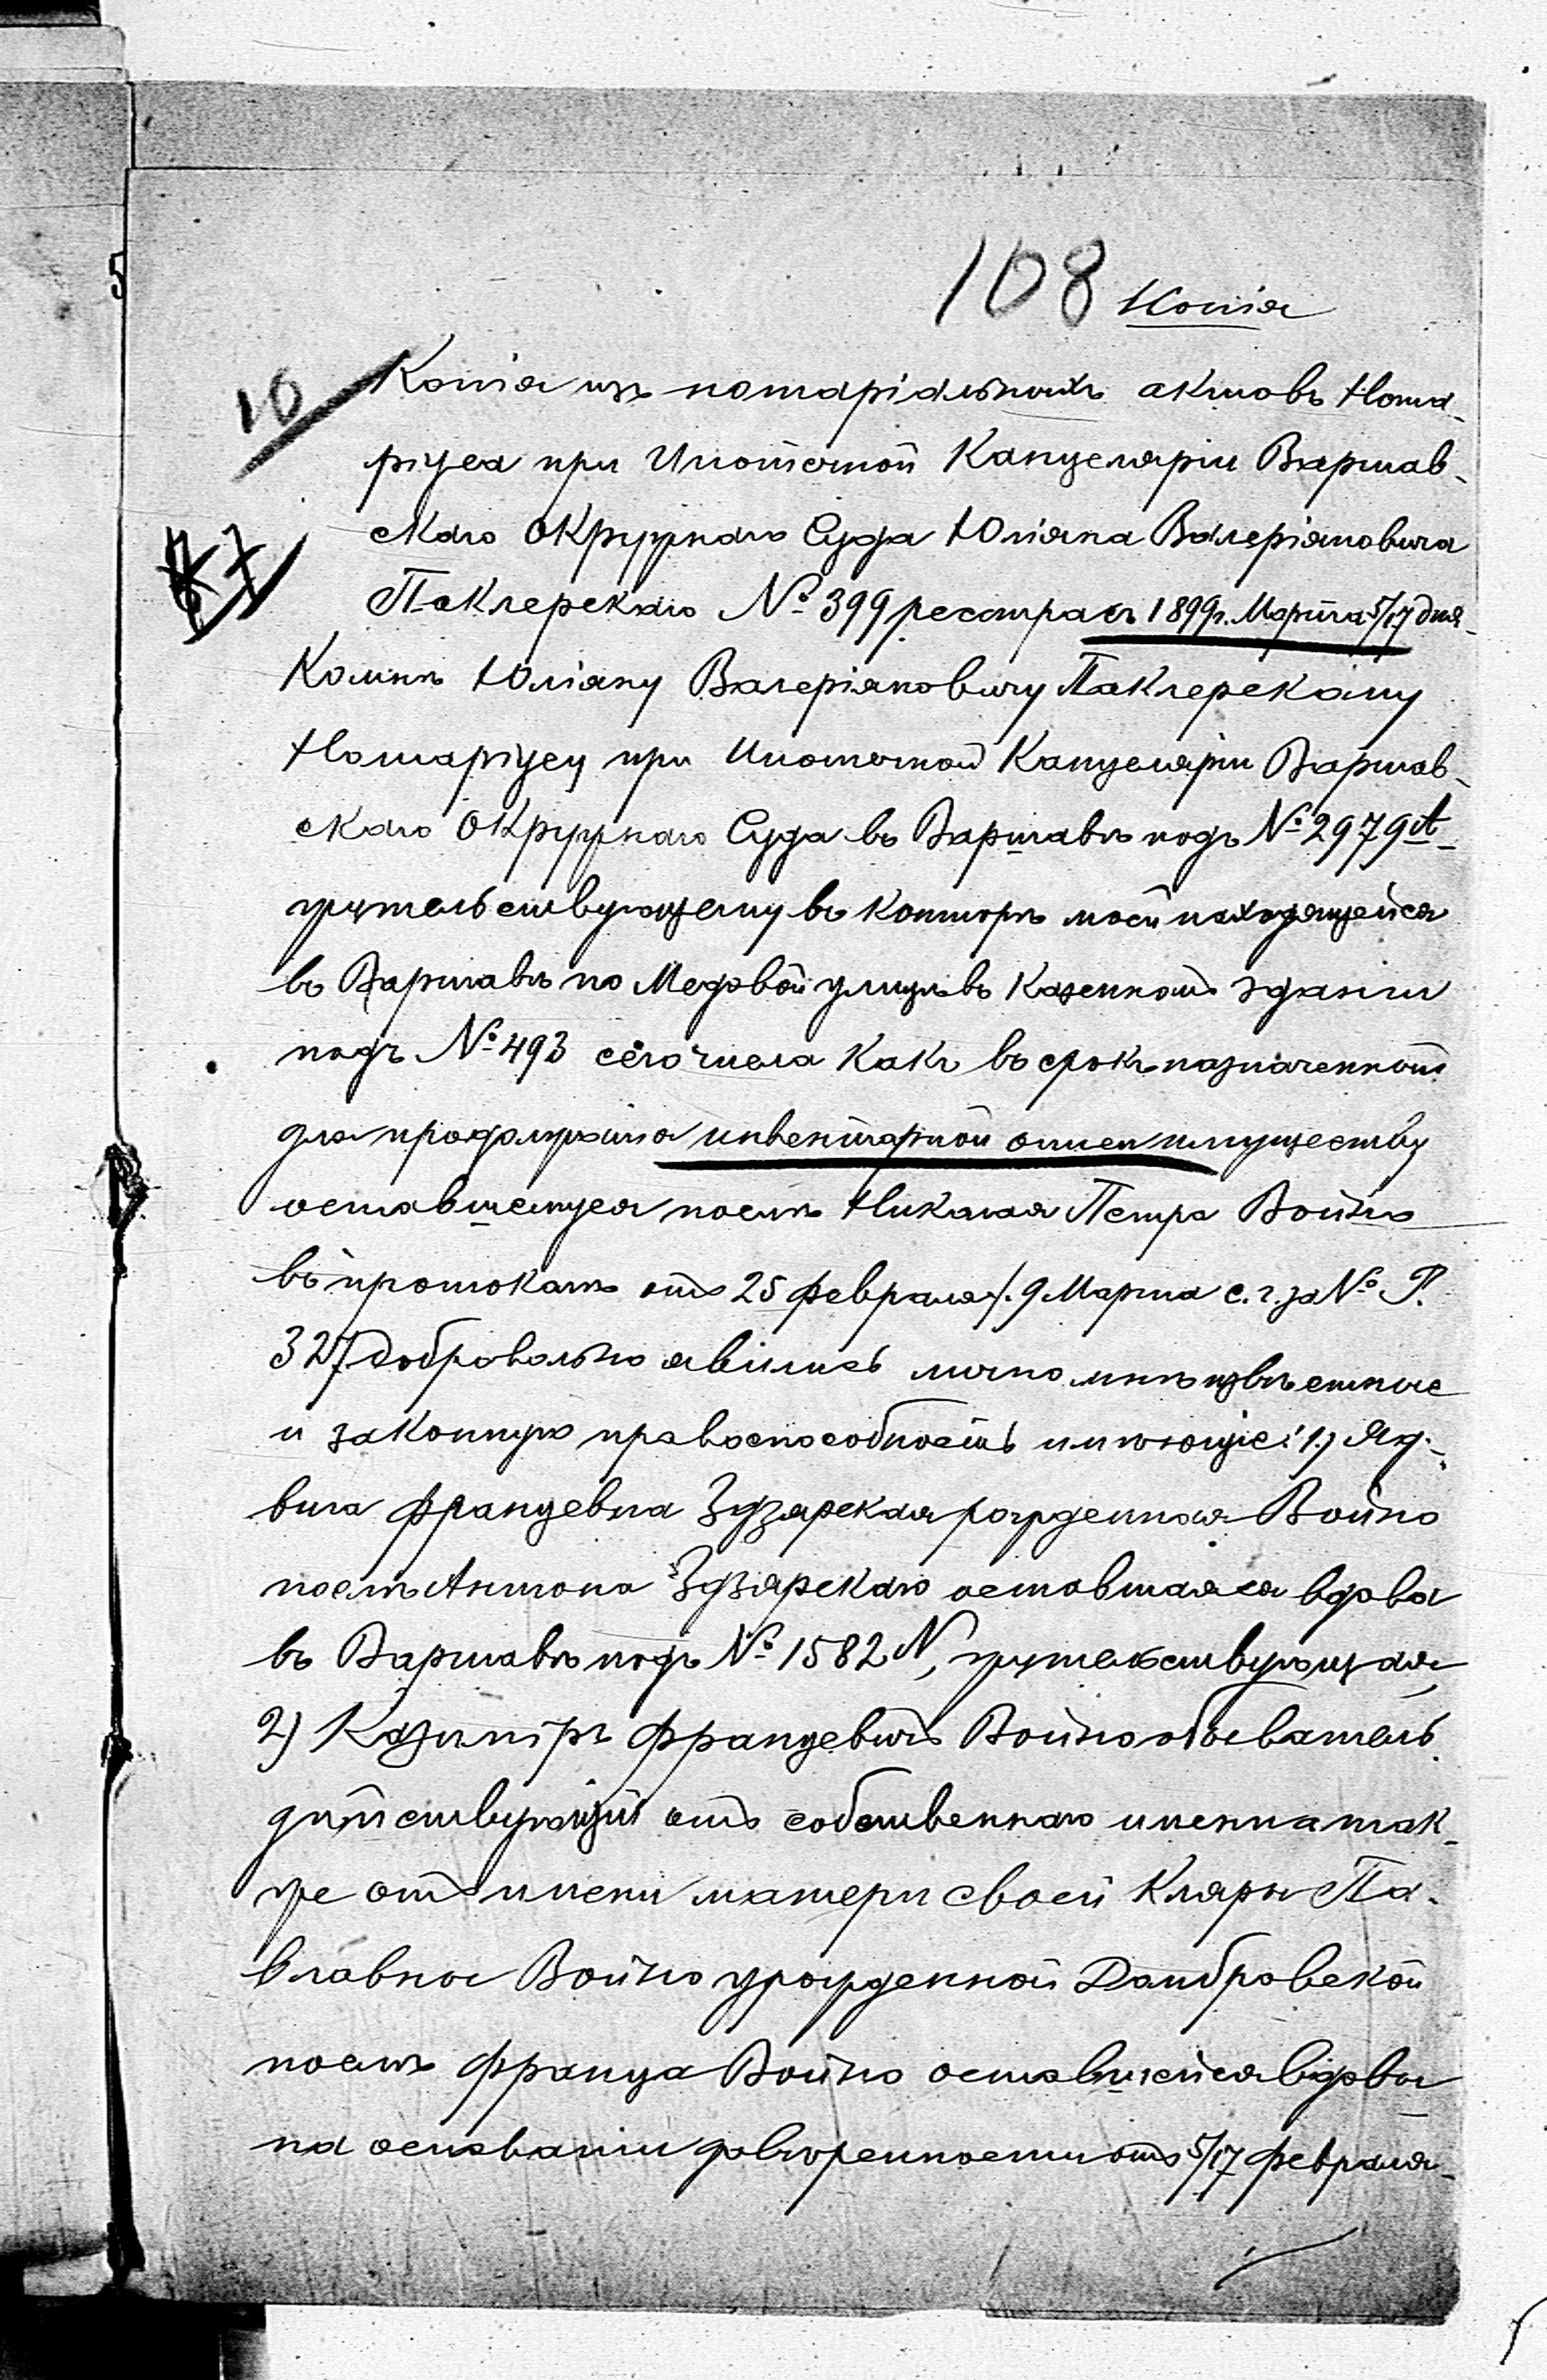 108 Копія
10 Копія изъ нотаріальныхъ актовъ Нота-
ріуса при Ипотечной Канцеляріи Варшав-
скаго Окружнаго Суда Юліана Валеріановича
Паклерскаго № 399 реестра съ 1899 г. Марта 5/17 дня
Ко мнѣ Юліану Валеріановичу Паклерскому
Нотаріусу при Ипотечной Канцеляріи Варшав-
скаго Окружнаго Суда въ Варшавѣ подъ № 2979А
жительствующему въ конторѣ моей находящейся
въ Варшавѣ по Медовой улицѣ въ казенномъ зданіи
подъ № 493 сего числа какъ въ срокъ назначенномъ
для продолженія инвентарной описи имуществу
оставшемуся послѣ Николая Петра Войно
въ протоколѣ отъ 25 февраля /. 9 Марта с. г. за № Р.
327 добровольно явились лично мнѣ извѣстные
и законную правоспособность имѣющіе: 1.) Яд-
вига Францевна Здзярская рожденная Войно
послѣ Антона Здзярскаго оставшаяся вдова
въ Варшавѣ подъ № 1582 N, жительствующая,
2) Казиміръ Францевичъ Войно обыватель
дѣйствующій отъ собственнаго имени а так-
же отъ имени матери своей Кляры Па-
вловны Войно урожденной Домбровской
послѣ Франца Войно оставшейся вдовы
на основаніи довѣренности отъ 5/17 февраля